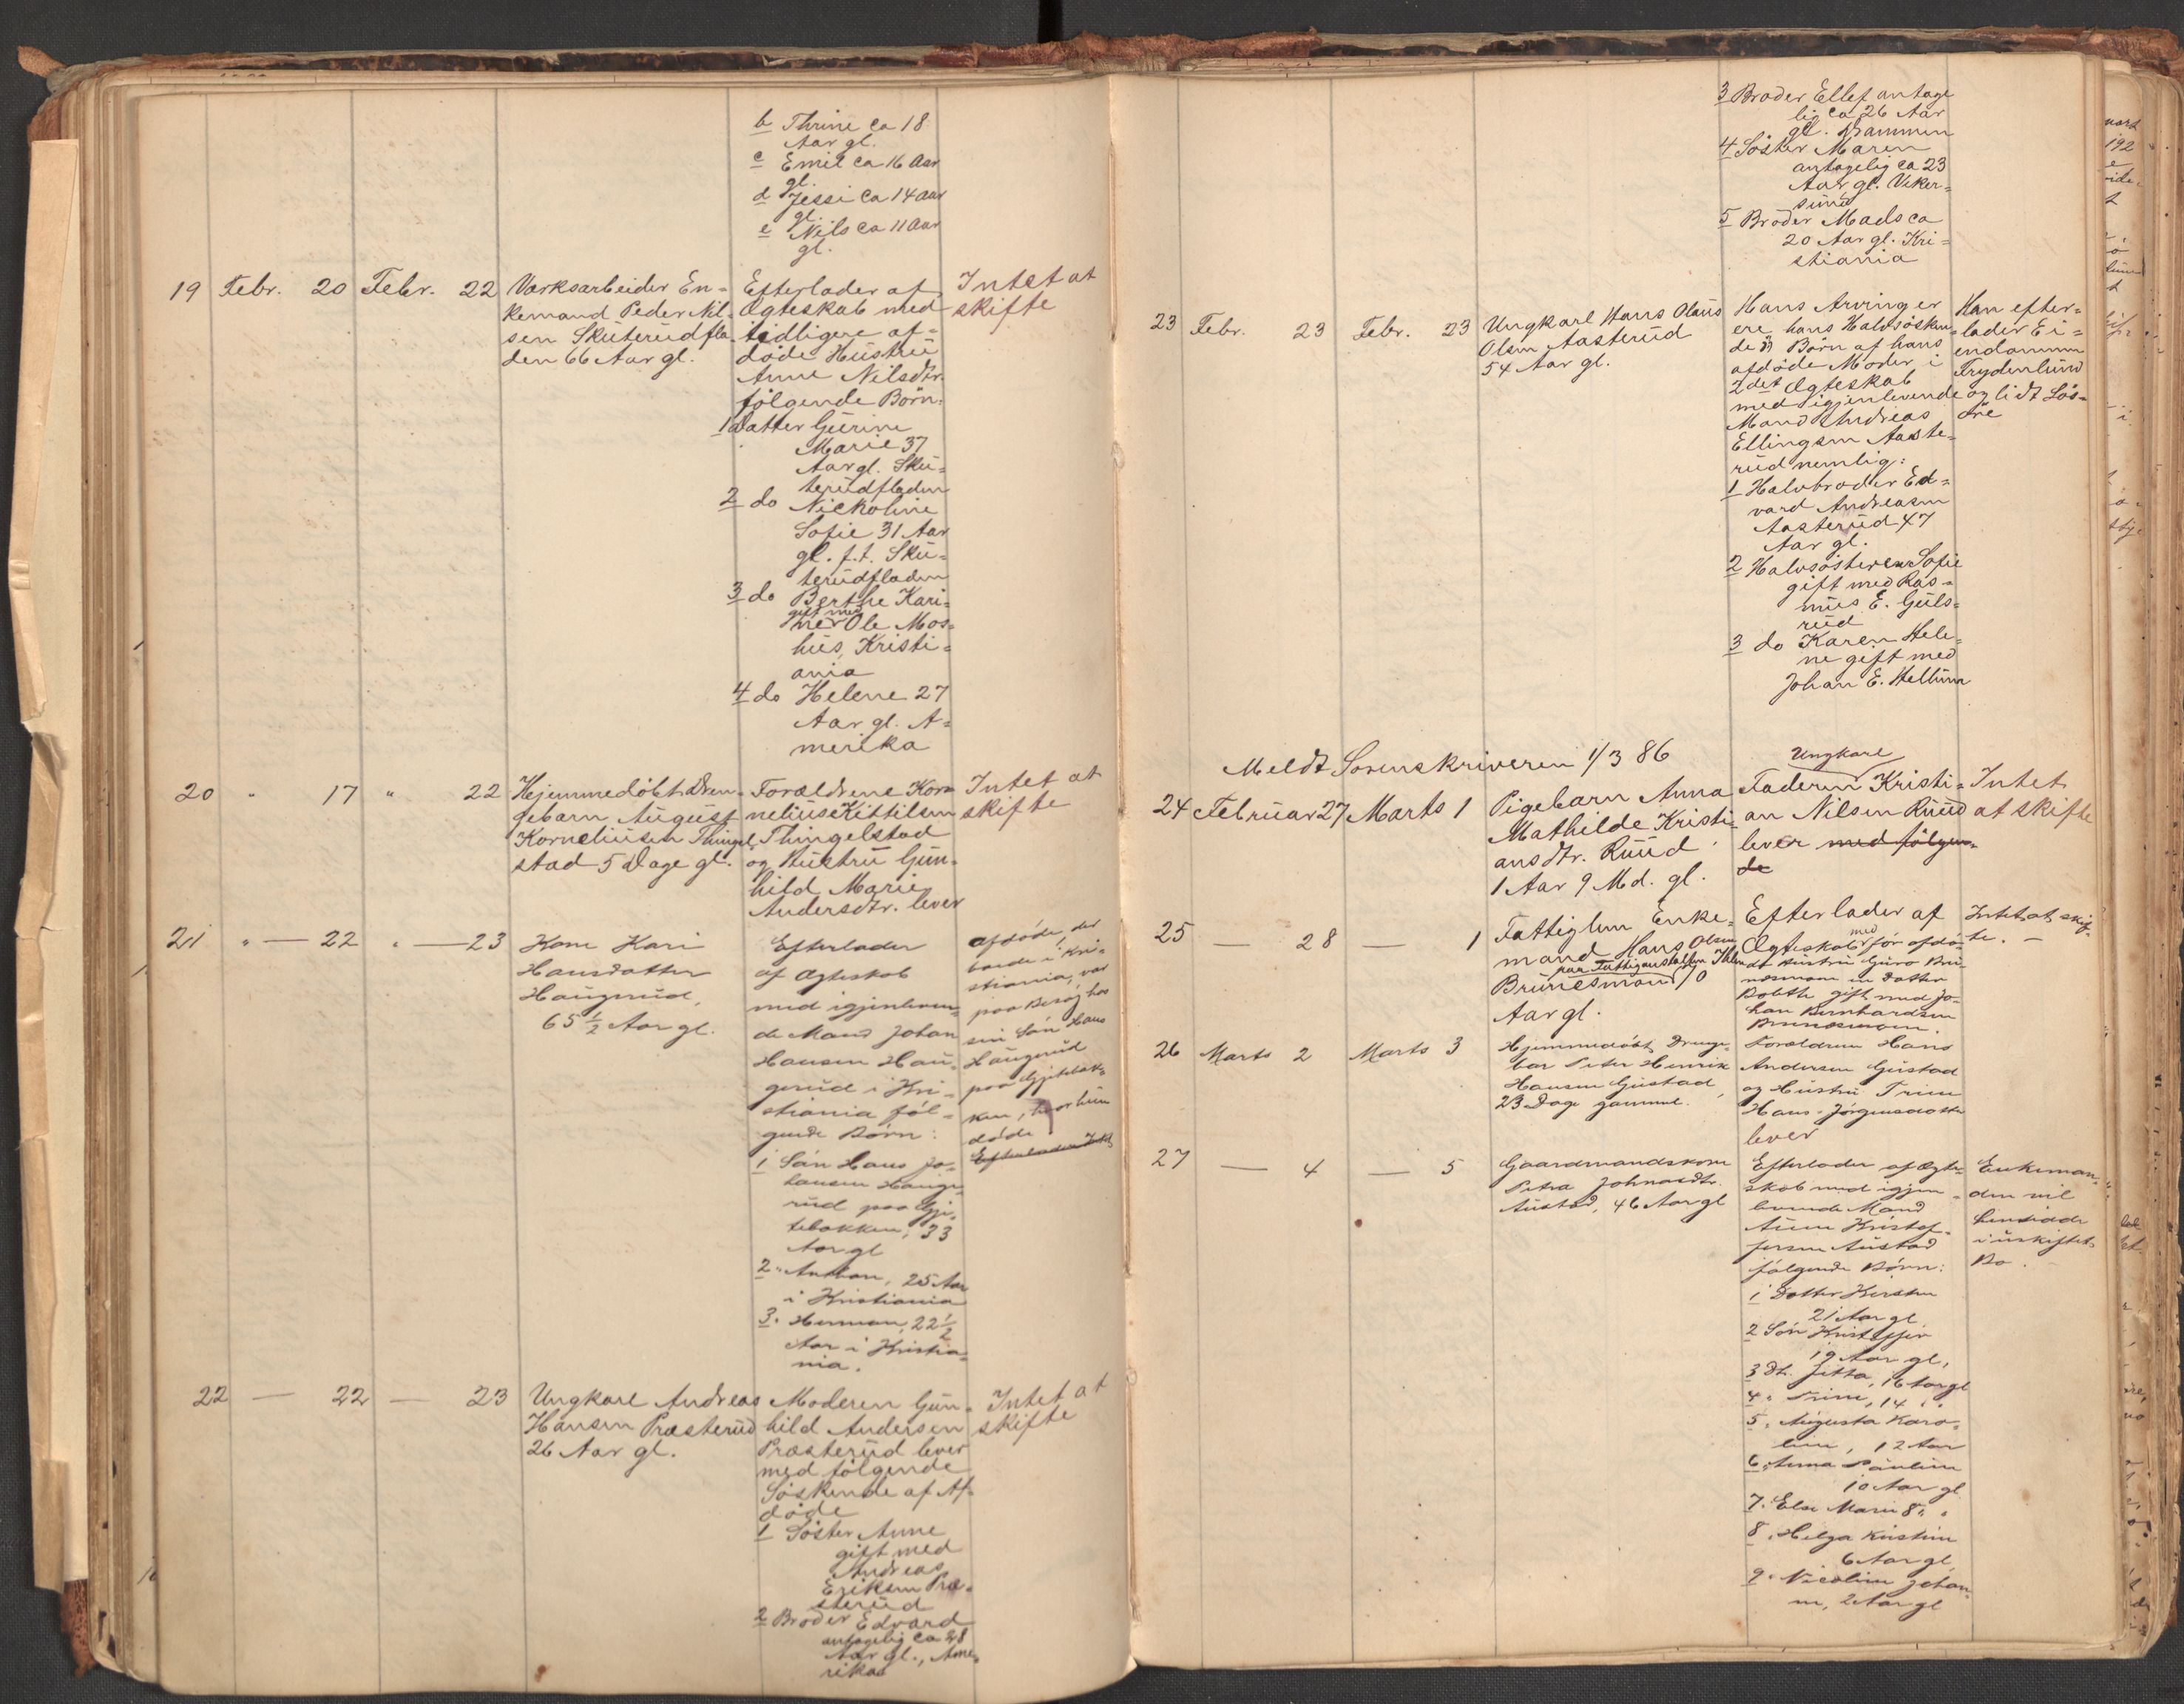 b Thrine ca 18
Aar gl.
c Emil ca 16 Aar
gl.
d Jessi ca 14 Aar
gl.
e Nils ca 11 Aar
gl.
19 Febr. 20 Febr. 22 Værksarbeider En=
kemand Peder Nil=
sen Skuterudfla=
den 66 Aar gl.
Efterlader af
Ægteskab med
tidligere af=
døde Hustru
Anne Nilsdtr.
følgende Børn:
1 Datter Gurine
Marie 37
Aar gl. Sku=
terudfladen
2 do Nickoline
Sofie 31 Aar
gl. f.t. Sku=
terudfladen
3 do Berthe Kari=
gift med
ne Ole Mos=
hus, Kristi=
ania
4 do Helene 27
Aar gl. A=
merika
Intet at
skifte
20 " 17 " 22 Hjemmedøbt Dren=
gebarn August
Korneliusen Thingel
stad 5 Dage gl.
Forældrene Kor=
nelius Kittilsen
Thingelstad
og Hustru Gun=
hild Marie
Andersdtr. lever
Intet at
skifte
21 " — 22 " — 23 Kone Kari
Hansdatter
Haugerud,
65 ½ Aar gl.
Efterlader
af Ægteskab
med igjenleven=
de Mand Johan
Hansen Hau=
gerud i Kri=
stiania føl=
gende Børn:
1 Søn Hans Jo=
hansen Hauge=
rud paa Gji=
tebakken, 33
Aar gl
2 " Anthon, 25 Aar
i Kristiania
3 " Herman, 22 ½
Aar i Kristia=
nia.
afdøde, der
boede i Kri=
stiania, var
paa Besøg hos
sin Søn Hans
Haugerud
paa Gjitebak=
ken, hvor hun
døde
Efterlader Intet
22 — 22 — 23 Ungkarl Andreas
Hansen Præsterud
26 Aar gl.
Moderen Gun=
hild Andersen
Præsterud lever
med følgende
Søskende af Af=
døde
1 Søster Anne
gift med
Andreas
Eriksen Præ=
sterud
2 Broder Edvard
antagelig ca 28
Aar gl., Ame=
rika
Intet at
skifte
3 Broder Ellef antage
lig ca 26 Aar
gl. Drammen
4 Søster Maren
antagelig ca 23
Aar gl. Viker=
sund
5 Broder Mads ca
20 Aar gl. Kri=
stiania
23 Febr. 23 Febr. 23 Ungkarl Hans Olaus
Olsen Aasterud
54 Aar gl.
Hans Arvinger
ere hans Halvsøsken=
de Børn af hans
afdøde Moder i
2det Ægteskab
med igjenlevende
Mand Andreas
Ellingsen Aaste=
rud nemlig:
1 Halvbroder Ed=
vard Andreasen
Aasterud 47
Aar gl.
2 Halvsøsteren Sofie
gift med Ras=
mus E. Guls=
rud
3 do Karen Hele=
ne gift med
Johan E. Hellum
Han efter=
lader Ei=
endommen
Frydenlund
og lidt Løs=
øre
Meldt Sorenskriveren 1/3 86
24 Februar 27 Marts 1 Pigebarn Anna
Mathilde Kristi=
ansdtr. Ruud
1 Aar 9 Md. gl.
Ungkarl
Faderen Kristi=
an Nilsen Ruud
lever med følgen=
de
Intet
at skifte
25 — 28 — 1 Fattiglem Enke=
mand Hans Olsen
paa Fattiganstalten
Brunesmoen 70
Aar gl.
Efterlader af
med
Ægteskab før afdø=
de Hustru Guro Bru=
nesmoen en Datter
gift med Jo=
han Bernhardsen
Brunesmoen.
Intet at skif=
te. —
26 Marts 2 Marts 3 Hjemmedøbt Drenge=
bar Peter Henrik
Hansen Gustad,
23 Dage gammel.
Forældrene Hans
Andersen Gustad
og Hustru Trine
Hans Jørgensdatter
lever
27 — 4 — 5 Gaardmandskone
Petra Johnsdtr.
Austad, 46 Aar gl
Efterlader af Ægte=
skab med igjen=
levende Mand
Kristof=
fersen Austad
følgende Børn:
1 Datter Kirsten
21 Aar gl
2 Søn Kristoffer
19 Aar gl,
3 Dt. Jetta, 16 Aar gl
4 " Trine, 14 " "
5 " Augusta Karo=
line, 12 Aar
6 " Anna Pauline
10 Aar gl
7 " Else Marie 8 " "
8 " Helga Kristine
6 Aar gl
9 " Nicoline Johan=
ne, 2 Aar gl
Enkeman=
den vil
hensidde
i uskiftet
Bo.